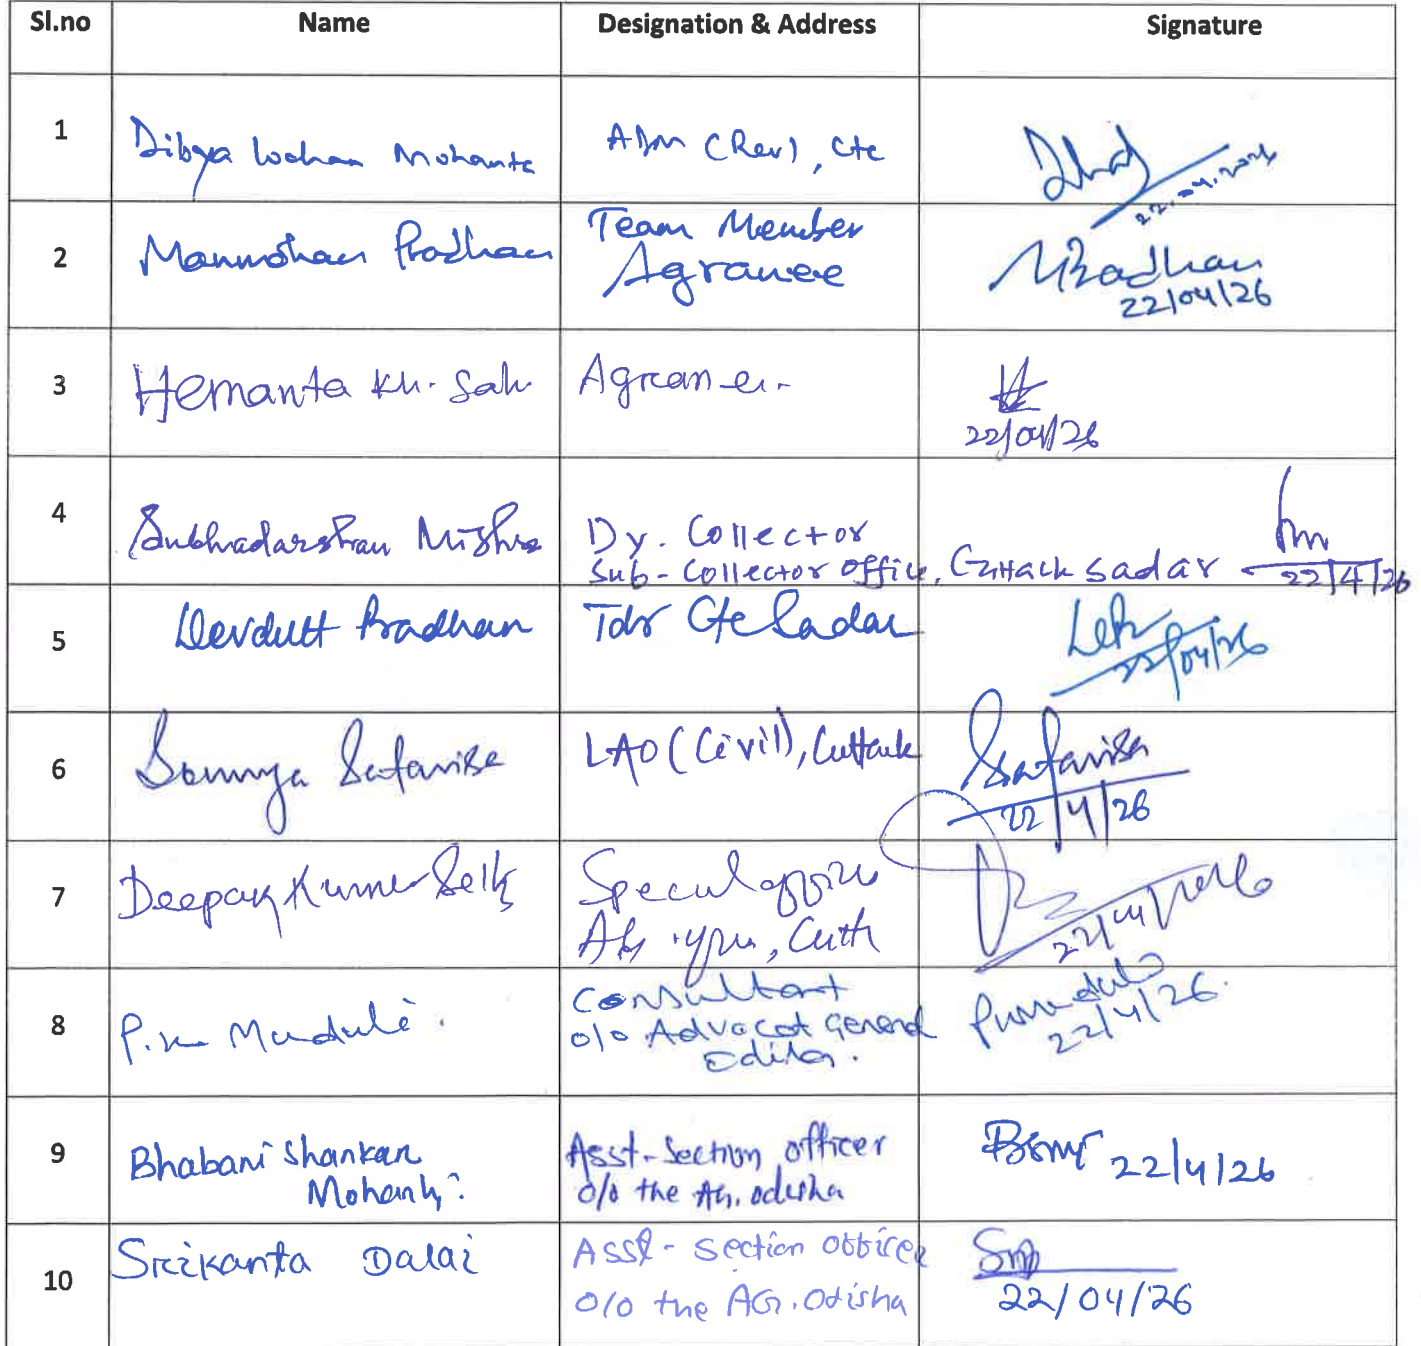 Sl.no Name Designation & Address Signature
1 Dibya Lochan Mohanta ADM (Rev), Ctc
22.04.2026
2 Manmohan Pradhan Team Member
Agranee MPradhan
22/04/26
3 Hemanta Kr. Sah Agranee
22/04/26
4 Subhadarshan Mishra Dy. Collector
Sub-Collector office, Cuttack sadar 22/4/26
5 Devdutt Pradhan Tdr Ctc Sadar
22/04/26
6 Soumya Satarisa LAO (Civil), Cuttack Ssatarisa
22/4/26
7 Deepak Kumar Special
22/4/2026
8 P.K Muduli. Consultant
o/o Advocat General
22/4/26.
9 Bhabani Shankar Asst-Section officer
Mohanty. o/o the AG. odisha 22/4/26
10 Srikanta Dalai Asst-Section officer
o/o the AG. Odisha 22/04/26